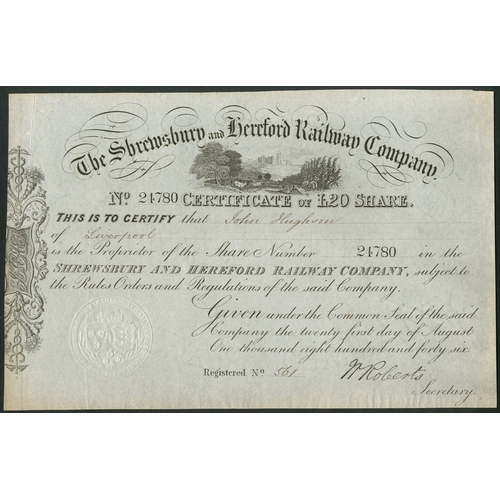 The Shrewsbury and Hereford Railway Company.
No 24780 CERTIFICATE OF £20 SHARE.
THIS IS TO CERTIFY that John
of Liverpool
is the Proprietor of the Share Number 24780 in the
SHREWSBURY AND HEREFORD RAILWAY COMPANY, subject to
the Rules Orders and Regulations of the said Company.
Given under the Common Seal of the said
Company the twenty first day of August
One thousand eight hundred and forty six.
Registered No 561
W Roberts
Secretary.